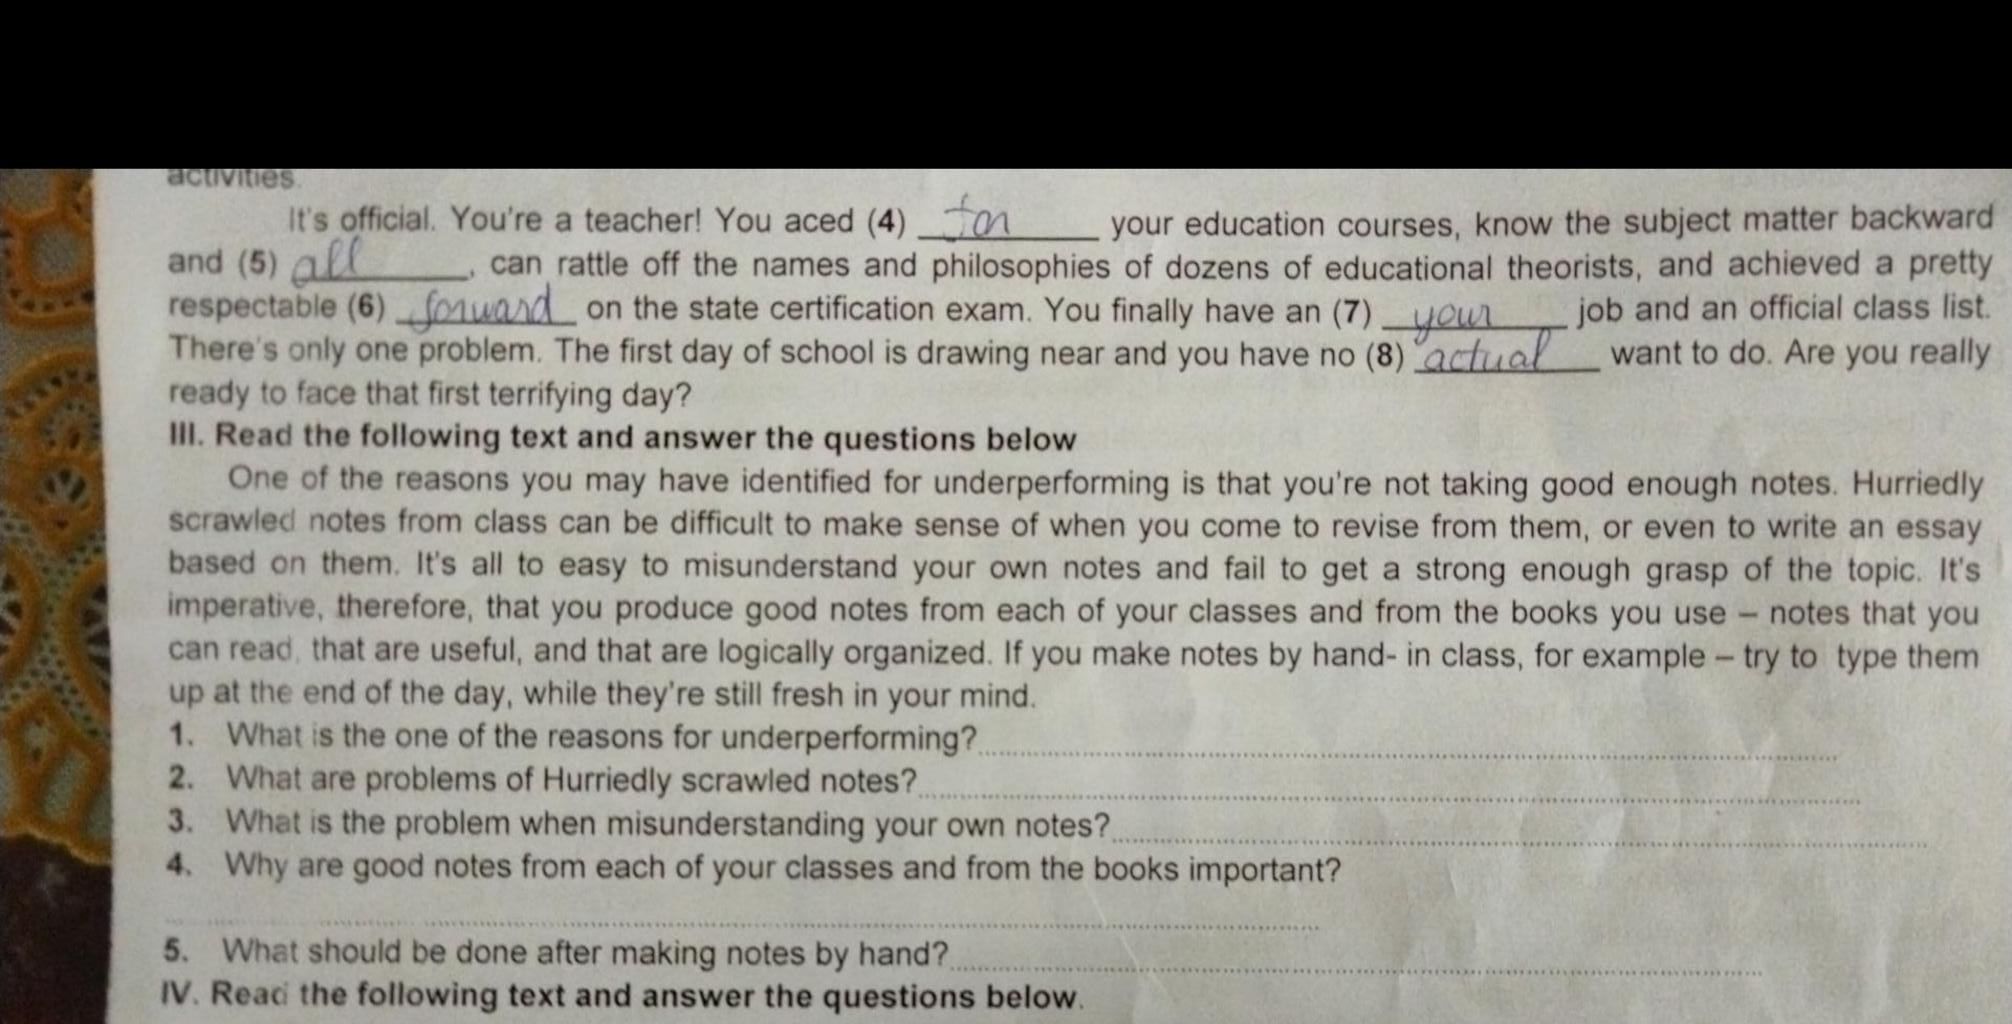 activities.
It's official. You're a teacher! You aced (4) for your education courses, know the subject matter backward
and (5) all, can rattle off the names and philosophies of dozens of educational theorists, and achieved a pretty
respectable (6) forward on the state certification exam. You finally have an (7) your job and an official class list.
There's only one problem. The first day of school is drawing near and you have no (8) actual want to do. Are you really
ready to face that first terrifying day?
III. Read the following text and answer the questions below
One of the reasons you may have identified for underperforming is that you're not taking good enough notes. Hurriedly
scrawled notes from class can be difficult to make sense of when you come to revise from them, or even to write an essay
based on them. It's all to easy to misunderstand your own notes and fail to get a strong enough grasp of the topic. It's
imperative, therefore, that you produce good notes from each of your classes and from the books you use – notes that you
can read, that are useful, and that are logically organized. If you make notes by hand- in class, for example – try to type them
up at the end of the day, while they're still fresh in your mind.
1. What is the one of the reasons for underperforming?
2. What are problems of Hurriedly scrawled notes?
3. What is the problem when misunderstanding your own notes?
4. Why are good notes from each of your classes and from the books important?
5. What should be done after making notes by hand?
IV. Read the following text and answer the questions below.